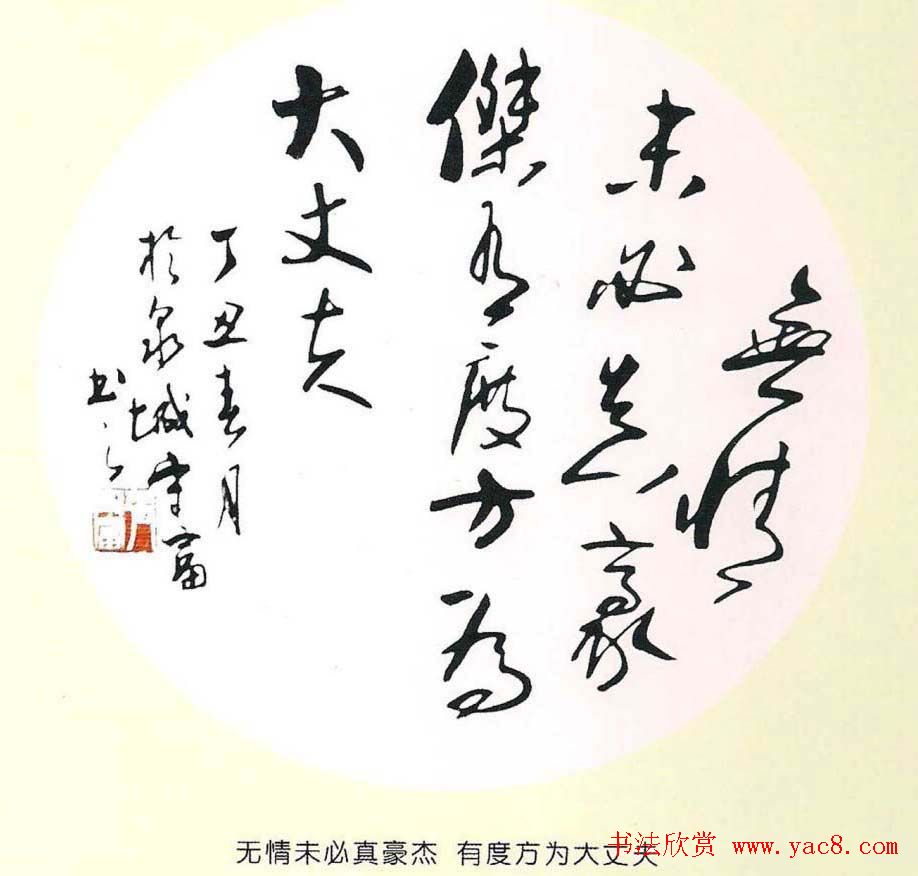 無情
未必真豪
傑有度方為
大丈夫
丁丑春月
於泉城守富
书
无情未必真豪杰 有度方为大丈夫
书法欣赏 www.yac8.com